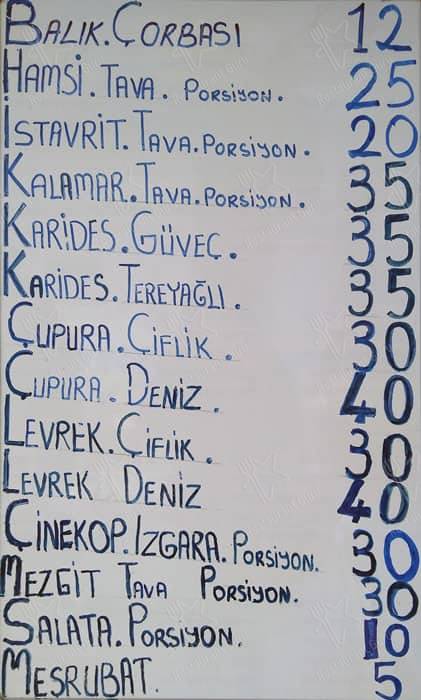 BALIK.ÇORBASI 12
HAMSİ.TAVA. PORSİYON. 25
İSTAVRİT.TAVA.PORSİYON. 20
KALAMAR.TAVA.PORSİYON. 35
KARİDES.GÜVEÇ. 35
KARİDES.TEREYAĞLI. 35
ÇUPURA.ÇİFLİK. 30
ÇUPURA.DENİZ. 40
LEVREK.ÇİFLİK. 30
LEVREK DENİZ 40
ÇİNEKOP.IZGARA.PORSİYON. 30
MEZGİT TAVA PORSİYON. 30
SALATA.PORSİYON. 10
MEŞRUBAT. 5